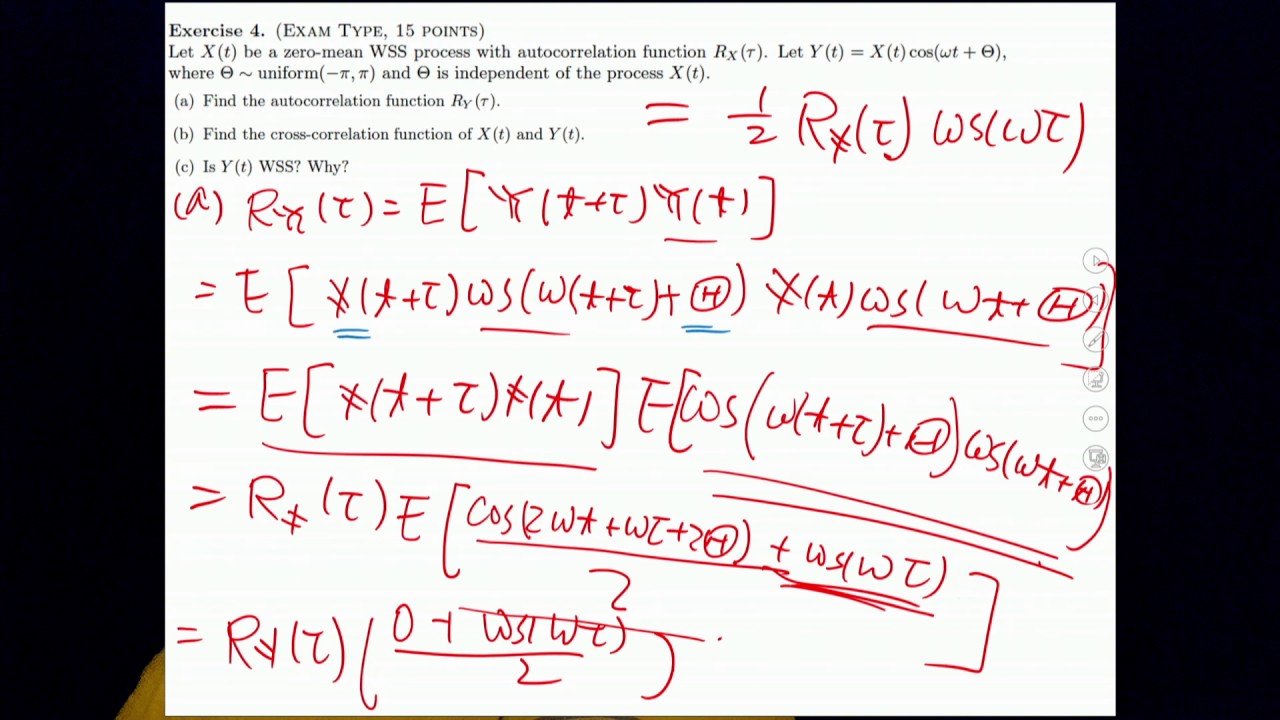 Exercise 4. (EXAM TYPE, 15 POINTS)
Let X(t) be a zero-mean WSS process with autocorrelation function R_X(τ). Let Y(t) = X(t) cos(ωt + Θ),
where Θ ∼ uniform(−π, π) and Θ is independent of the process X(t).
(a) Find the autocorrelation function R_Y(τ).
(b) Find the cross-correlation function of X(t) and Y(t).
(c) Is Y(t) WSS? Why?
= 1/2 R_X(τ) cos(ωτ)
(a) R_Y(τ) = E[Y(t+τ)Y(t)]
= E[X(t+τ)cos(ω(t+τ)+Θ) X(t)cos(ωt+Θ)]
= E[X(t+τ)X(t)] E[cos(ω(t+τ)+Θ)cos(ωt+Θ)]
= R_X(τ) E[(cos(2ωt+ωτ+2Θ) + cos(ωτ))/2]
= R_X(τ) ((0 + cos(ωτ))/2)